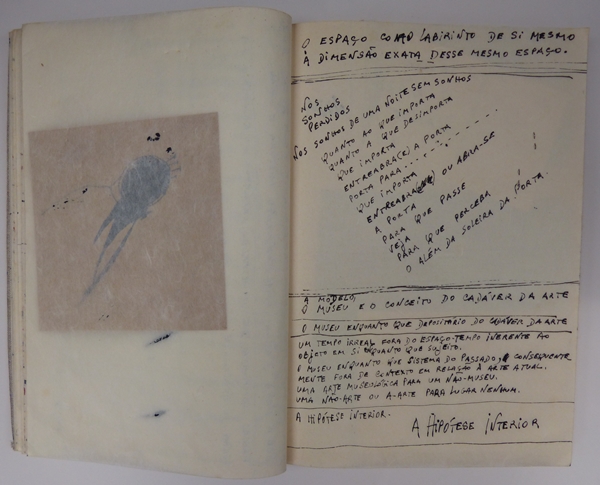 O ESPAÇO COMO LABIRINTO DE SI MESMO
À DIMENSÃO EXATA DESSE MESMO ESPAÇO.
NOS
SONHOS
PERDIDOS
NOS SONHOS DE UMA NOITE SEM SONHOS
QUANTO AO QUE IMPORTA
QUANTO A QUE DESIMPORTA
QUE IMPORTA
ENTREABRA(E) A PORTA
PORTA PARA
QUE IMPORTA
ENTREABRA OU ABRA-SE
A PORTA
PARA QUE PASSE
VEJA
PARA QUE PERCEBA
O ALÉM DA SOLEIRA DA PORTA.
A MODELO,
O MUSEU E O CONCEITO DO CADÁVER DA ARTE
O MUSEU ENQUANTO QUE DEPOSITÁRIO DO CADÁVER DA ARTE
UM TEMPO IRREAL FORA DO ESPAÇO-TEMPO INERENTE AO
OBJETO EM SI ENQUANTO QUE SUJEITO.
O MUSEU ENQUANTO QUE SISTEMA DO PASSADO, CONSEQUENTE
MENTE FORA DE CONTEXTO EM RELAÇÃO À ARTE ATUAL.
UMA ARTE MUSEOLÓGICA PARA UM NÃO-MUSEU.
UMA NÃO-ARTE OU A-ARTE PARA LUGAR NENHUM.
A HIPÓTESE INTERIOR.
A HIPÓTESE INTERIOR